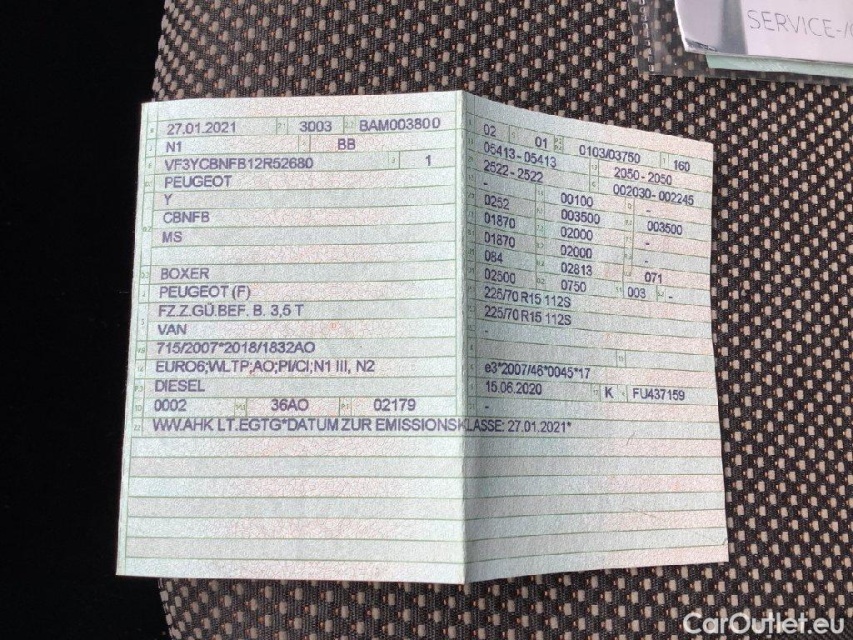 SERVICE-
27.01.2021 3003 BAM003800
N1 BB
VF3YCBNFB12R52680 1
PEUGEOT
Y
CBNFB
MS
BOXER
PEUGEOT (F)
FZ.Z.GÜ.BEF. B. 3,5 T
VAN
715/2007*2018/1832AO
EURO6;WLTP;AO;PI/CI;N1 III, N2
DIESEL
0002 36AO 02179
WW.AHK LT.EGTG*DATUM ZUR EMISSIONSKLASSE: 27.01.2021*
02 01 0103/03750 160
05413-05413 2050-2050
2522-2522 002030-002245
- 00100 -
0252 003500 003500
01870 02000 -
01870 02000 -
084 02813 071
02500 0750 003 -
225/70 R15 112S
225/70 R15 112S
-
e3*2007/46*0045*17
15.06.2020 K FU437159
-
CarOutlet.eu